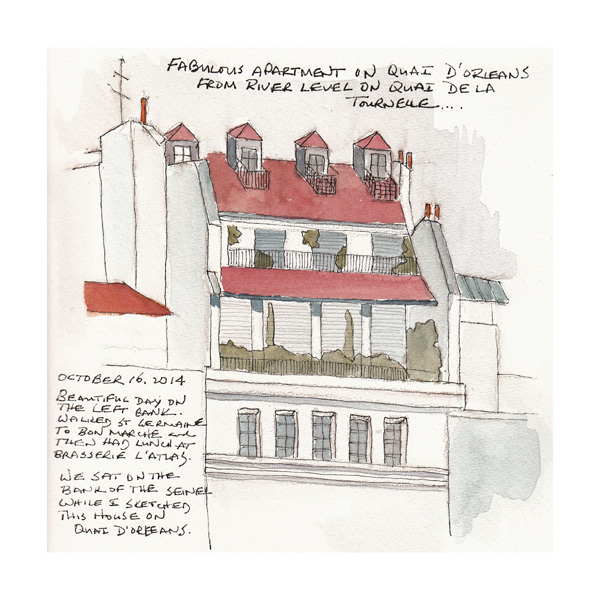 FABULOUS APARTMENT ON QUAI D'ORLEANS
FROM RIVER LEVEL ON QUAI DE LA
TOURNELLE....
OCTOBER 16, 2014
BEAUTIFUL DAY ON
THE LEFT BANK.
WALKED ST GERMAINE
TO BON MARCHE and
THEN HAD LUNCH AT
BRASSERIE L'ATLAS.
WE SAT ON THE
BANK OF THE SEINE
WHILE I SKETCHED
THIS HOUSE ON
QUAI D'ORLEANS.